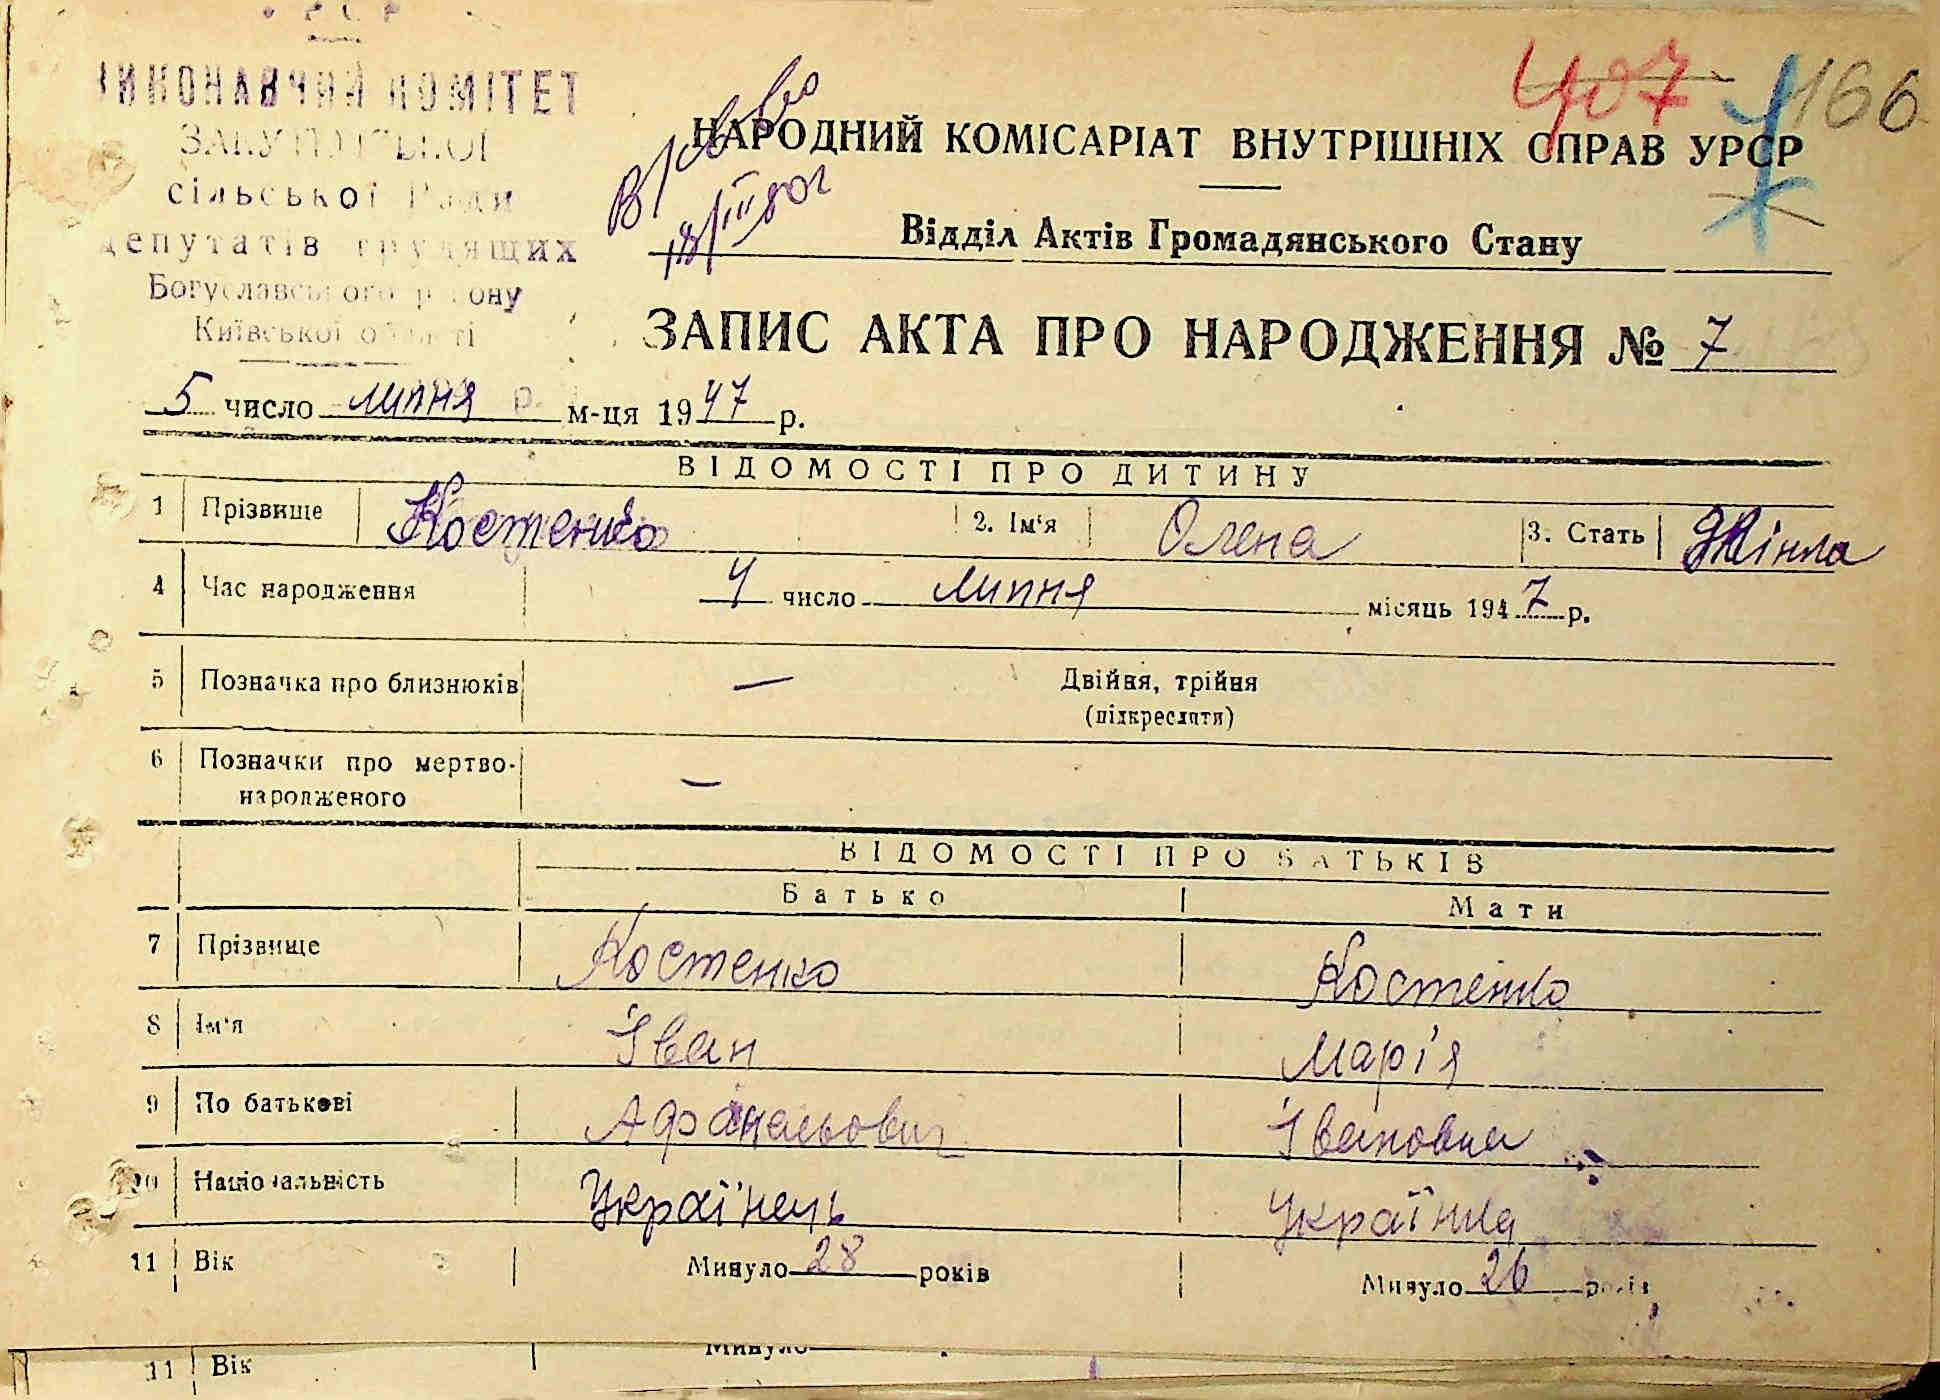 407 166
ВИКОНАВЧИЙ КОМІТЕТ
сільської Ради
депутатів трудящих
Богуславського району
Київської області
НАРОДНИЙ КОМІСАРІАТ ВНУТРІШНІХ СПРАВ УРСР
Відділ Актів Громадянського Стану
ЗАПИС АКТА ПРО НАРОДЖЕННЯ № 7
5 число липня м-ця 1947 р.
ВІДОМОСТІ ПРО ДИТИНУ
1 Прізвище Костенко 2. Ім'я Олена 3. Стать
4 Час народження 4 число липня місяць 1947 р.
5 Позначка про близнюків — Двійня, трійня
(підкреслити)
6 Позначки про мертво-
народженого —
ВІДОМОСТІ ПРО БАТЬКІВ
Батько Мати
7 Прізвище Костенко Костенко
8 Ім'я Іван Мар'я
9 По батькові Івановна
10 Національність Українець Українка
11 Вік Минуло 28 років Минуло 26 років
11 Вік Минуло